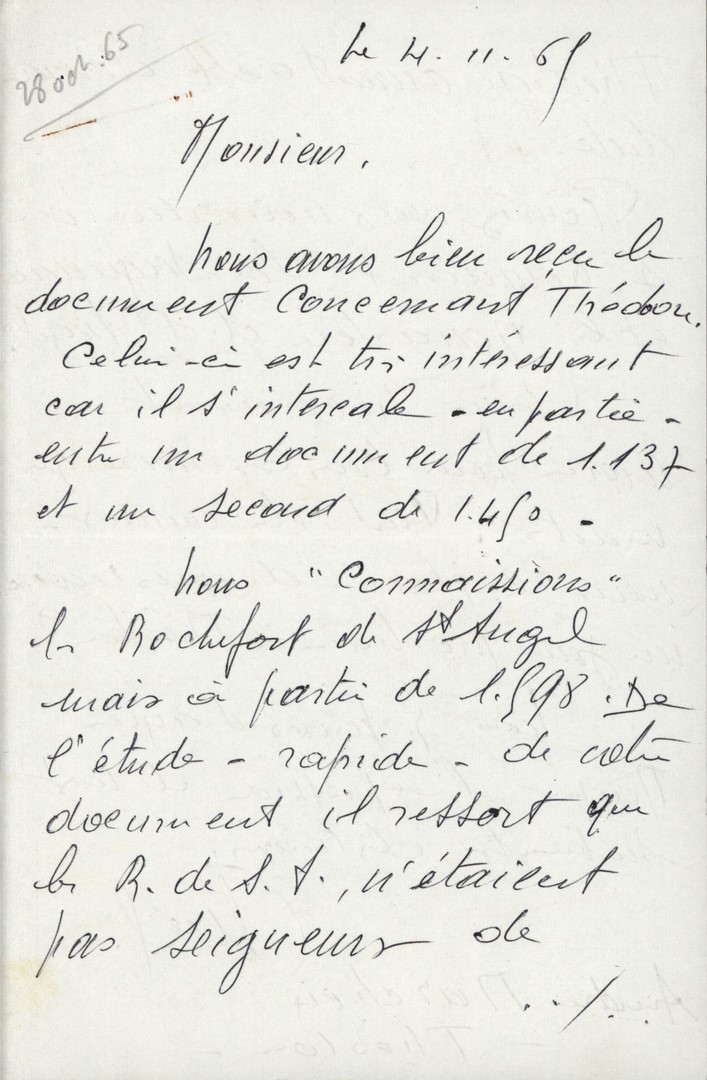 28 oct. 65
Le 4. 11. 65
Monsieur,
nous avons bien reçu le
document concernant Théodon.
Celui-ci est très intéressant
car il s'intercale - en partie -
entre un document de 1.137
et un second de 1.450 -
nous "connaissions"
les Rochefort de St Angel
mais à partir de 1.598. De
l'étude - rapide - de votre
document il ressort que
les R. de S. A., n'étaient
pas seigneurs de
../.